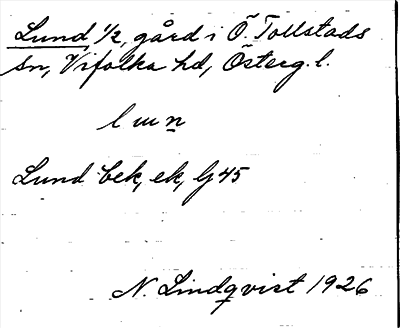 Lund 1/2, gård i Ö. Tollstads
sn, Vifolka hd, Österg. l.
l u n
Lund bek, ek, Gj 45
N. Lindqvist 1926